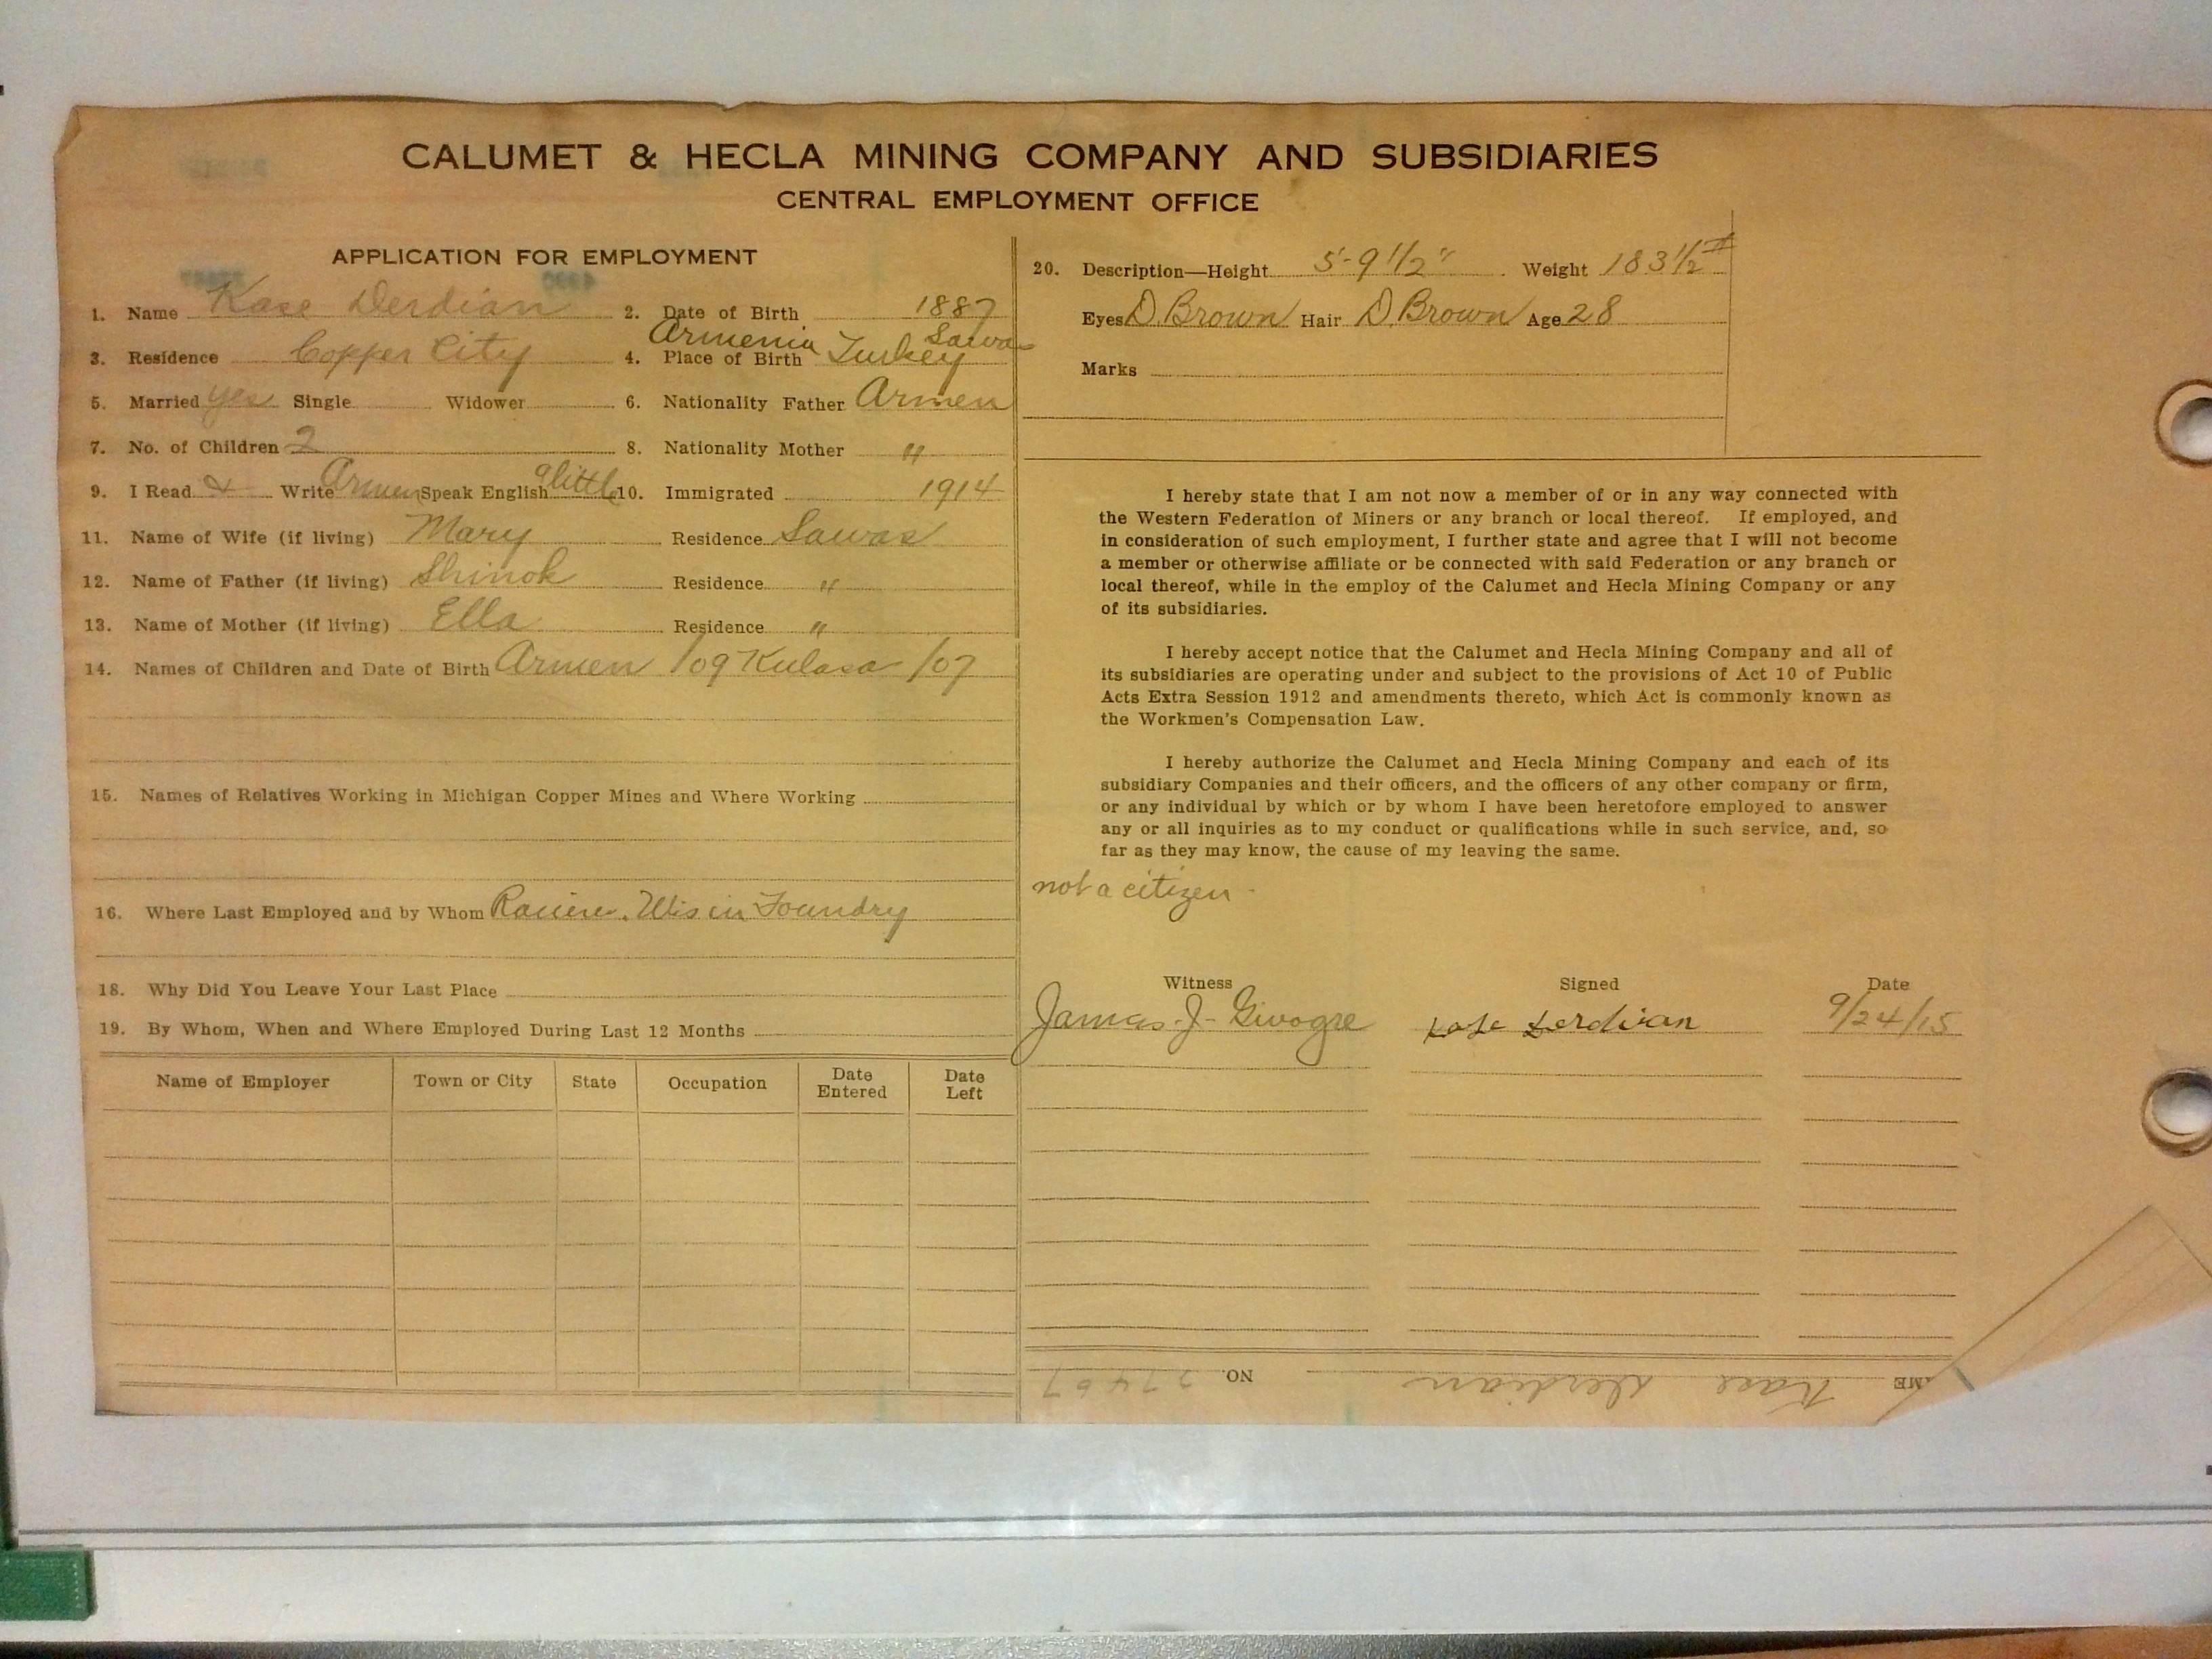 CALUMET & HECLA MINING COMPANY AND SUBSIDIARIES
CENTRAL EMPLOYMENT OFFICE
APPLICATION FOR EMPLOYMENT
1. Name Kase Derdian 2. Date of Birth 1887
3. Residence Copper City 4. Place of Birth Armenia Turkey Sawas
5. Married yes Single Widower 6. Nationality Father Armen
7. No. of Children 2 8. Nationality Mother "
9. I Read & Write Armen Speak English a little 10. Immigrated 1914
11. Name of Wife (if living) Mary Residence Sawas
12. Name of Father (if living) Shinok Residence "
13. Name of Mother (if living) Ella Residence "
14. Names of Children and Date of Birth Armen /09 Kulasa /07
15. Names of Relatives Working in Michigan Copper Mines and Where Working
16. Where Last Employed and by Whom Racine. Wis in Foundry
18. Why Did You Leave Your Last Place
19. By Whom, When and Where Employed During Last 12 Months
Name of Employer Town or City State Occupation Date Entered Date Left
20. Description—Height 5'-9 1/2" Weight 183 1/2 #
Eyes D. Brown Hair D. Brown Age 28
Marks
I hereby state that I am not now a member of or in any way connected with
the Western Federation of Miners or any branch or local thereof. If employed, and
in consideration of such employment, I further state and agree that I will not become
a member or otherwise affiliate or be connected with said Federation or any branch or
local thereof, while in the employ of the Calumet and Hecla Mining Company or any
of its subsidiaries.
I hereby accept notice that the Calumet and Hecla Mining Company and all of
its subsidiaries are operating under and subject to the provisions of Act 10 of Public
Acts Extra Session 1912 and amendments thereto, which Act is commonly known as
the Workmen's Compensation Law.
I hereby authorize the Calumet and Hecla Mining Company and each of its
subsidiary Companies and their officers, and the officers of any other company or firm,
or any individual by which or by whom I have been heretofore employed to answer
any or all inquiries as to my conduct or qualifications while in such service, and, so
far as they may know, the cause of my leaving the same.
not a citizen -
Witness Signed Date
James J. Derdian 9/24/15
AME Kase Derdian NO.